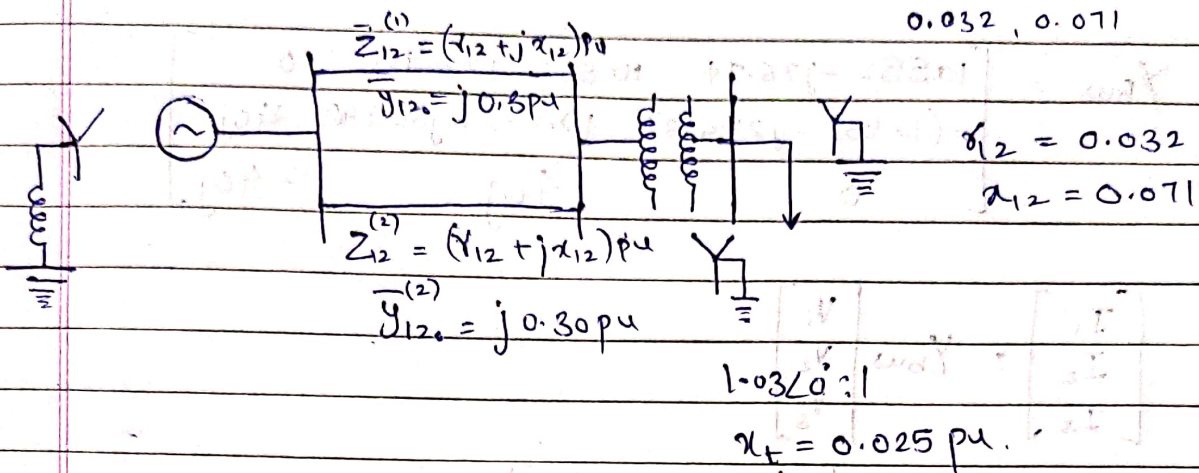 0.032, 0.071
Z̄₁₂⁽¹⁾ = (r₁₂ + j x₁₂) pu
ȳ₁₂₀ = j 0.3 pu
r₁₂ = 0.032
x₁₂ = 0.071
Z₁₂⁽²⁾ = (r₁₂ + j x₁₂) pu
ȳ₁₂₀⁽²⁾ = j 0.30 pu
1.03∠0° : 1
xₜ = 0.025 pu.